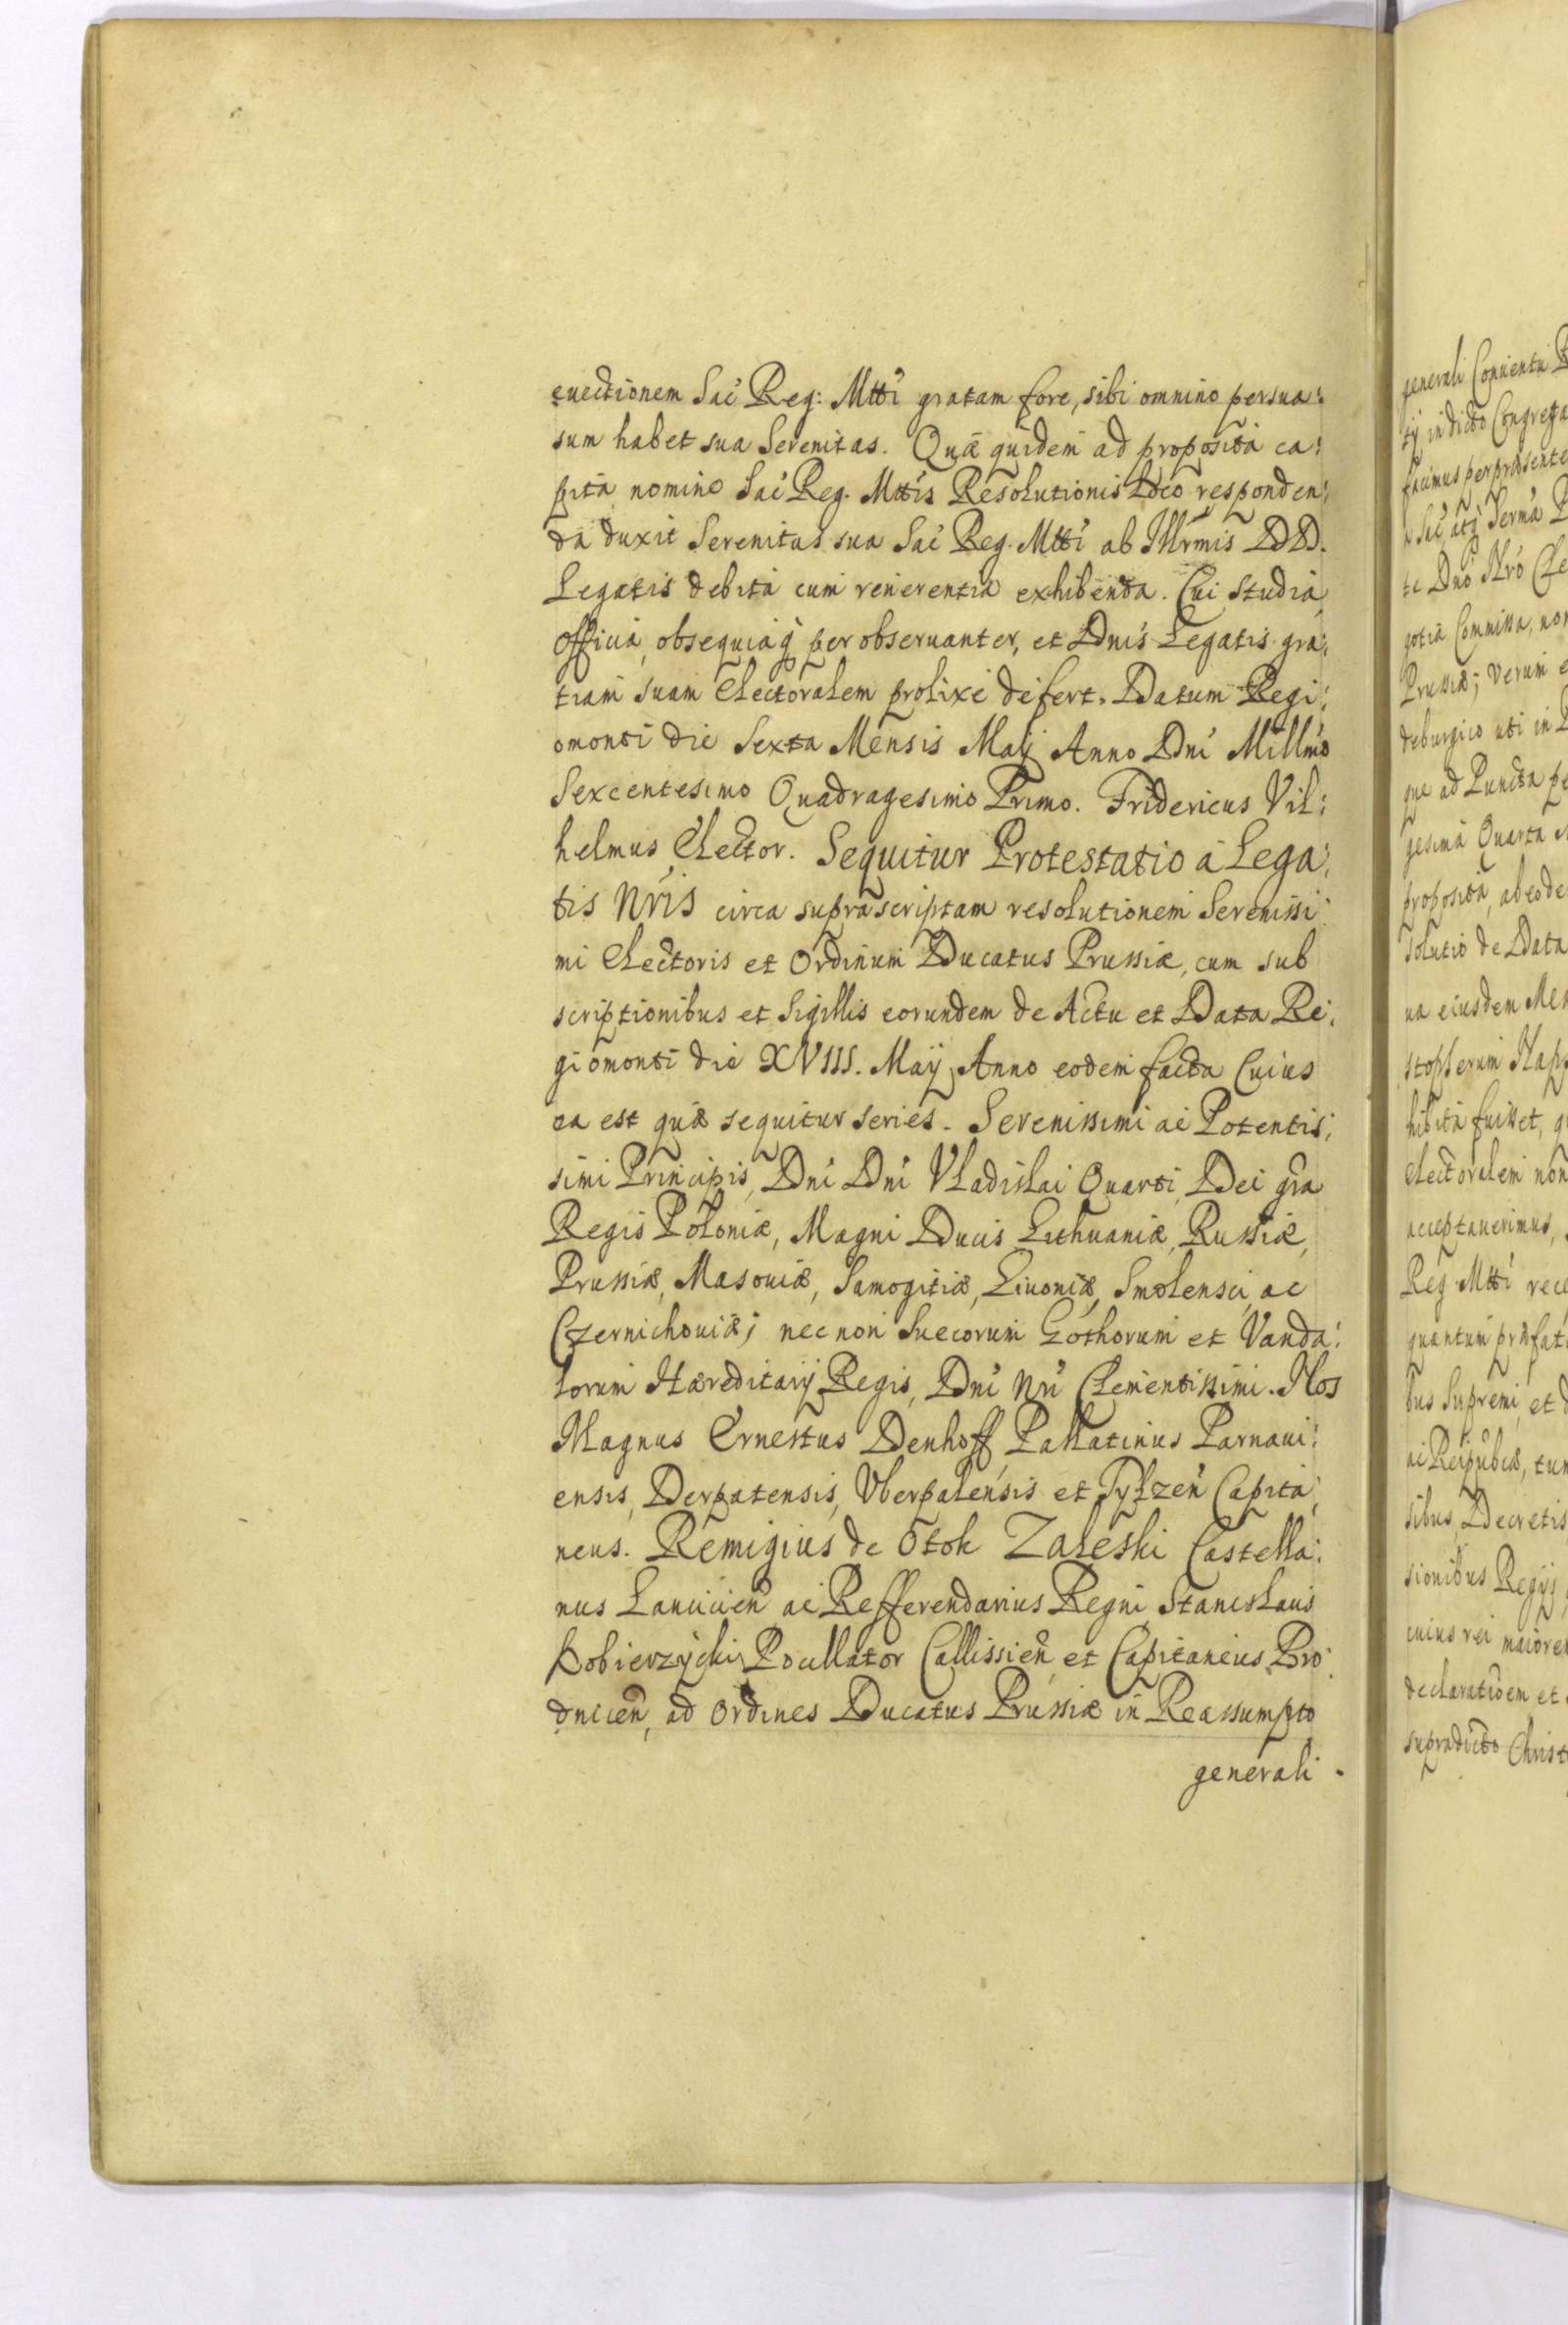 euectionem Sac̃ Reg: Mtti gratam fore, sibi omnino persua:
sum habet sua Serenitas. Quæ quidem ad proposita ca:
pita nomine Sac̃ Reg. Mttis Resolutionis Loco responden:
da duxit Serenitas sua Sac̃ Reg. Mtti ab Illrmis DD.
Legatis debita cum reuerentia exhibenda. Cui studia,
officia, obsequiaq́ꝫ per obseruanter, et Dnis Legatis gra:
tiam suam Electoralem prolixe defert. Datum Regi:
omonti die Sexta Mensis Maij Anno Dni Millmo
Sexcentesimo Quadragesimo Primo. Fridericus Vil:
helmus Elector. Sequitur Protestatio a Lega:
tis Nris circa suprascriptam resolutionem Serenissi:
mi Electoris et Ordinum Ducatus Prussiæ, cum sub
scriptionibus et Sigillis eorundem de Actu et Data Re:
giomonti die XVIII. Maij Anno eodem facta Cuius
ea est quæ sequitur series. Serenissimi ac Potentis:
simi Principis, Dni Dni Vladislai Quarti, Dei gra
Regis Poloniæ, Magni Ducis Lithuaniæ, Russiæ,
Prussiæ, Masouiæ, Samogitiæ, Liuoniæ, Smolensci, ac
Czernichouiæ; nec non Suecorum Gothorum et Vanda:
lorum Hæreditarij Regis, Dni Nri Clementissimi. Nos
Magnus Ernestus Denhoff, Pallatinus Parnaui:
ensis, Derpatensis, Vberpalensis et Tylzen̄ Capita:
neus. Remigius de Otok Zaleski Castella:
nus Lanciciēn ac Refferendarius Regni, Stanislaus
Kobierzycki Pocillator Callissiēn et Capitaneus Bro:
dniceñ, ad Ordines Ducatus Prussiæ in Reassumpto
generali
generali Conuentu
tij indicto Congrega
facimus per præsente
te Dno Nro Cle
gotia Commissa, non
Prussiæ; Verum e
deburgico uti in
que ad Puncta pe
gesima Quarta
proposita, ab eode
solutio de Data
na eiusdem Men
stopherum Rap
hibita fuisset, q
Electoralem non
acceptauerimus,
Reg Mtti rece
quantum præfat
bus Supremi, et d
ac Reipubcæ, tum
sibus, Decretis
sionibus Regijs
cuius rei maiorem
declarationem et
supradicto Christ